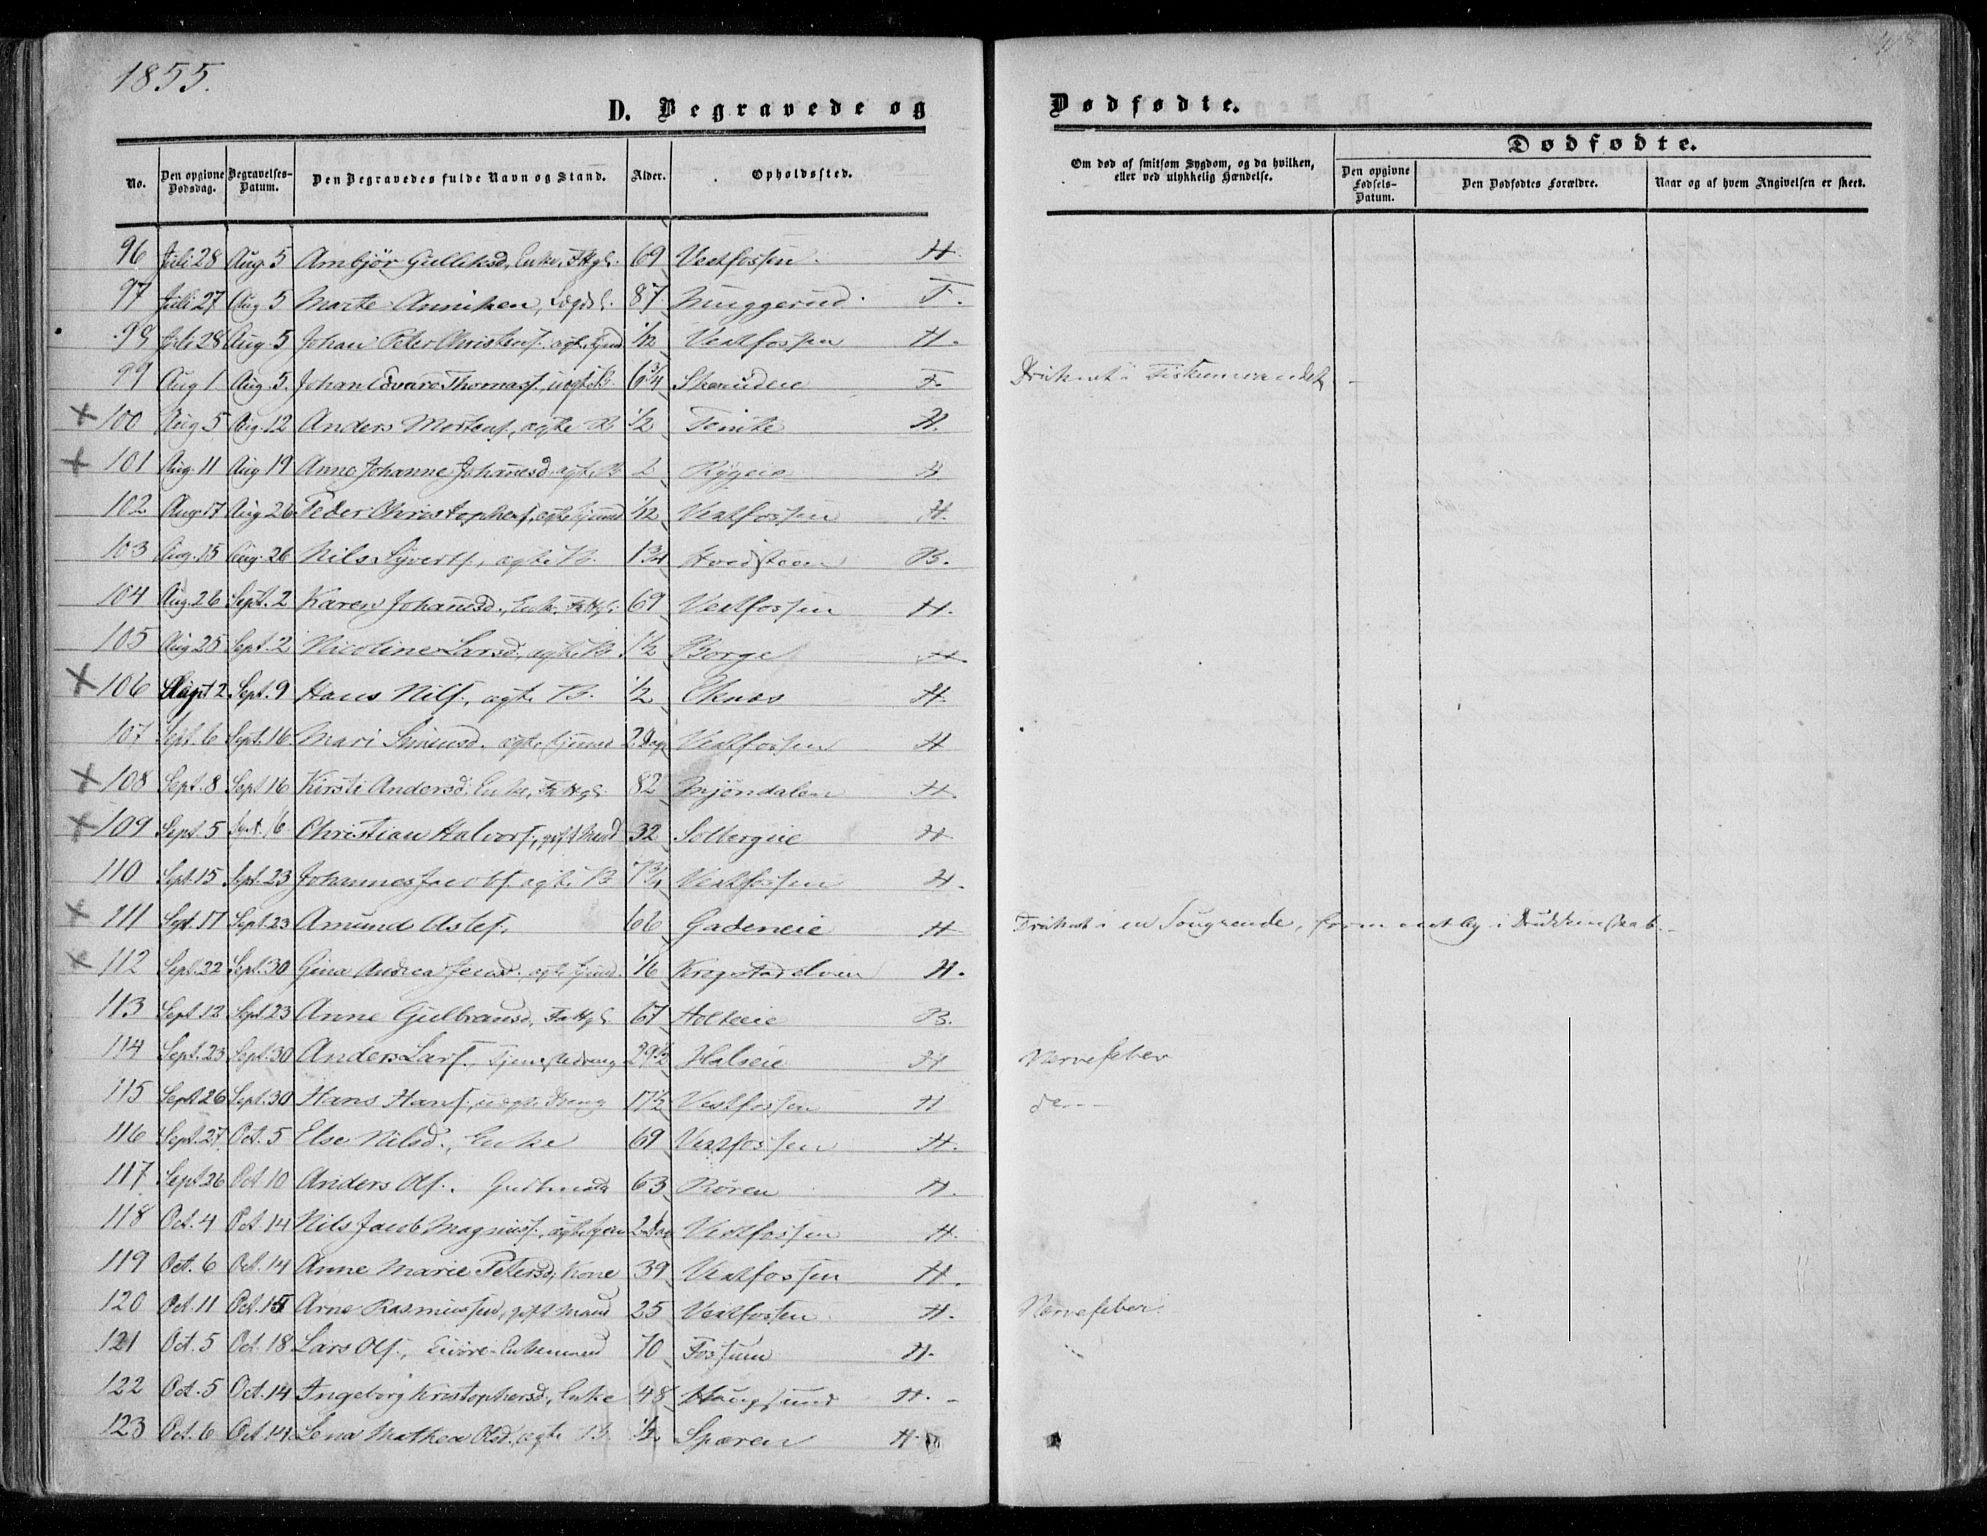 1855.
D. Begravede og
Dødfødte.
Dødfødte.
No. Den opgivne Dødsdag. Begravelses-Datum. Den Begravedes fulde Navn og Stand. Alder. Opholdssted.
Om død af smitsom Sygdom, og da hvilken, eller ved ulykkelig Hændelse. Den opgivne Fødsels-Datum. Den Dødfødtes Forældre. Naar og af hvem Angivelsen er skeet.
96 Juli 28 Aug. 5 Ambjør Gulliksd, Enke, 69 Vestfossen. H.
97 Juli 27 Aug 5 Marte Anniken, 87 F.
98 Juli 28 Aug. 5 Johan Peter Christens. 1/12 Vestfossen H.
99 Aug 1 Aug. 5. Johan Edvard Thomass. 6 3/4 F. Druknet i Fiskumvandet.
× 100 Aug 5 Aug. 12 Anders Mortens., ægte B. 1/2 H.
× 101 Aug. 11 Aug 19 Anne Johanne ægte B.
102 Aug. 17 Aug 26 Peder Christophers., ægte 1/12 Vestfossen H.
103 Aug. 15 Aug. 26 Nils Syverts., ægte B. 1 3/4 Hvidsteen B.
104 Aug. 26 Sept. 2 Karen Johansd., Enke, 69 Vestfossen H.
105 Aug 25 Sept. 2 Nicoline Larsd., ægte B. 1 1/2 Borge H
× 106 Sept 2 Sept. 9 Hans Nils., ægte B. 1/2 Eknæs H.
107 Sept. 6 Sept. 16 Mari Simensd. ægte 2 Dage Vestfossen H
× 108 Sept. 8 Sept 16 Kirsti Andersd. Enke, 82 Mjøndalen H.
× 109 Sept. 5 Sept. 16 Christian Halvors., gift Mand 32 Solbergeie H
110 Sept. 15 Sept. 23 Johannes Jacobs. ægte B Vestfossen H.
× 111 Sept. 17 Sept 23 Amund Aslef., 66 Gadeneie H Druknet i en formentlig i Drukkenskab.
× 112 Sept. 22 Sept. 30 Gina Andrea Jensd., ægte 1/6 Krogstadelven H.
113 Sept 12 Sept 23 Anne Gulbransd., 67 Holteeie B.
114 Sept. 23 Sept. 30 Anders Lars., Tjenestedreng 29 1/2 Halseie H Nervefeber
115 Sept 26 Sept. 30 Hans Hans., uægte Dreng 17 1/2 Vestfossen H do.
116 Sept. 27 Oct. 5 Else Nilsd., Enke 69 Vestfossen H.
117 Sept 26 Oct 10 Anders Ols. 63 Røren H.
118 Oct. 4 Oct. 14 Nils Jacob Magnuss., ægte 2 Dage Vestfossen H.
119 Oct. 6 Oct. 14 Anne Marie Petersd., Kone 39 Vestfossen H.
120 Oct. 11 Oct. 15 Arne Rasmussen, gift Mand 25 Vestfossen. H. Nervefeber.
121 Oct. 5 Oct. 18 Lars Ols., Enkemand 70 Fossum H.
122 Oct. 5 Oct. 14 Ingeborg Kristophersd., Enke 48 Haugsund H.
123 Oct. 6 Oct. 14. Lena Mathea Olsd. ægte B. Sparen H